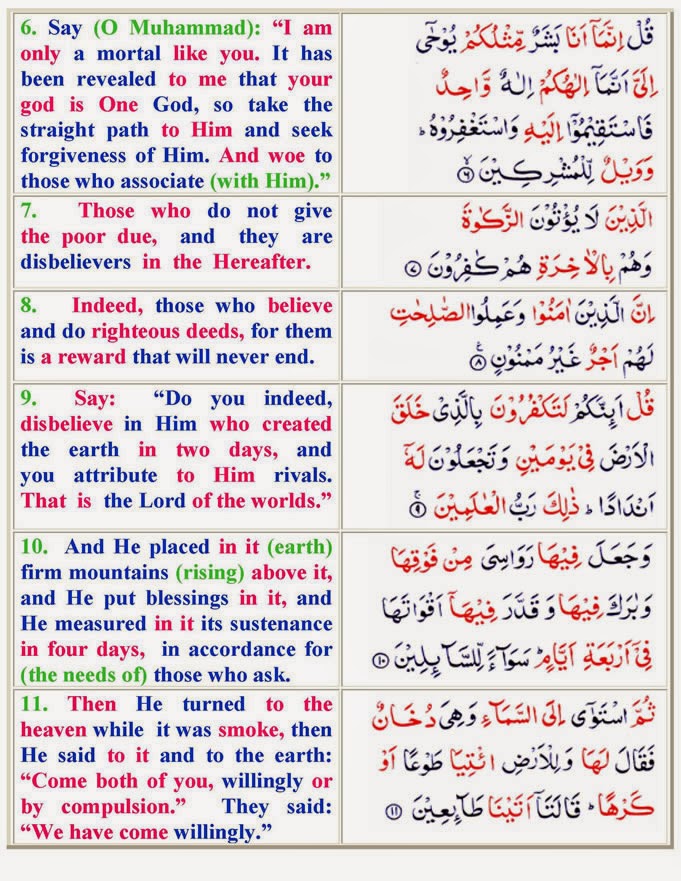 6. Say (O Muhammad): “I am
only a mortal like you. It has
been revealed to me that your
god is One God, so take the
straight path to Him and seek
forgiveness of Him. And woe to
those who associate (with Him).”
قُلْ اِنَّمَاۤ اَنَا بَشَرٌ مِّثْلُكُمْ يُوْحٰۤى
اِلَىَّ اَنَّمَاۤ اِلٰهُكُمْ اِلٰهٌ وَّاحِدٌ
فَاسْتَقِيْمُوْۤا اِلَيْهِ وَاسْتَغْفِرُوْهُ ؕ
وَوَيْلٌ لِّلْمُشْرِكِيْنَ ۙ‏﴿۶﴾
7. Those who do not give
the poor due, and they are
disbelievers in the Hereafter.
الَّذِيْنَ لَا يُؤْتُوْنَ الزَّكٰوةَ
وَهُمْ بِالْاٰخِرَةِ هُمْ كٰفِرُوْنَ ﴿۷﴾
8. Indeed, those who believe
and do righteous deeds, for them
is a reward that will never end.
اِنَّ الَّذِيْنَ اٰمَنُوْا وَعَمِلُوا الصّٰلِحٰتِ
لَهُمْ اَجْرٌ غَيْرُ مَمْنُوْنٍ ﴿۸﴾
9. Say: “Do you indeed,
disbelieve in Him who created
the earth in two days, and
you attribute to Him rivals.
That is the Lord of the worlds.”
قُلْ اَٮِٕنَّكُمْ لَتَكْفُرُوْنَ بِالَّذِىْ خَلَقَ
الْاَرْضَ فِىْ يَوْمَيْنِ وَتَجْعَلُوْنَ لَهٗۤ
اَنْدَادًا ؕ ذٰلِكَ رَبُّ الْعٰلَمِيْنَ ﴿۹﴾
10. And He placed in it (earth)
firm mountains (rising) above it,
and He put blessings in it, and
He measured in it its sustenance
in four days, in accordance for
(the needs of) those who ask.
وَجَعَلَ فِيْهَا رَوَاسِىَ مِنْ فَوْقِهَا
وَبٰرَكَ فِيْهَا وَقَدَّرَ فِيْهَاۤ اَقْوَاتَهَا
فِىْۤ اَرْبَعَةِ اَيَّامٍ ؕ سَوَآءً لِّلسَّآٮِٕلِيْنَ ﴿۱۰﴾
11. Then He turned to the
heaven while it was smoke, then
He said to it and to the earth:
“Come both of you, willingly or
by compulsion.” They said:
“We have come willingly.”
ثُمَّ اسْتَوٰۤى اِلَى السَّمَآءِ وَهِىَ دُخَانٌ
فَقَالَ لَهَا وَلِلْاَرْضِ ائْتِيَا طَوْعًا اَوْ
كَرْهًا ؕ قَالَتَاۤ اَتَيْنَا طَآٮِٕعِيْنَ ﴿۱۱﴾